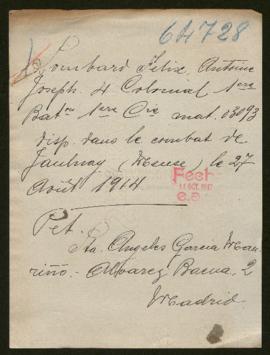 64728
Lombard Félix, Antoine
Joseph. 4 Colonial 1ère
Baton 1ère Cie mat. 13093
disp. dans le combat de
Jaulnay (Meuse) le 27
Août 1914
Fech
11 OCT. 1917
e.a
Pet.
Sta. Angeles Garcia Man
riño.- Alvarez Baena, 2
Madrid